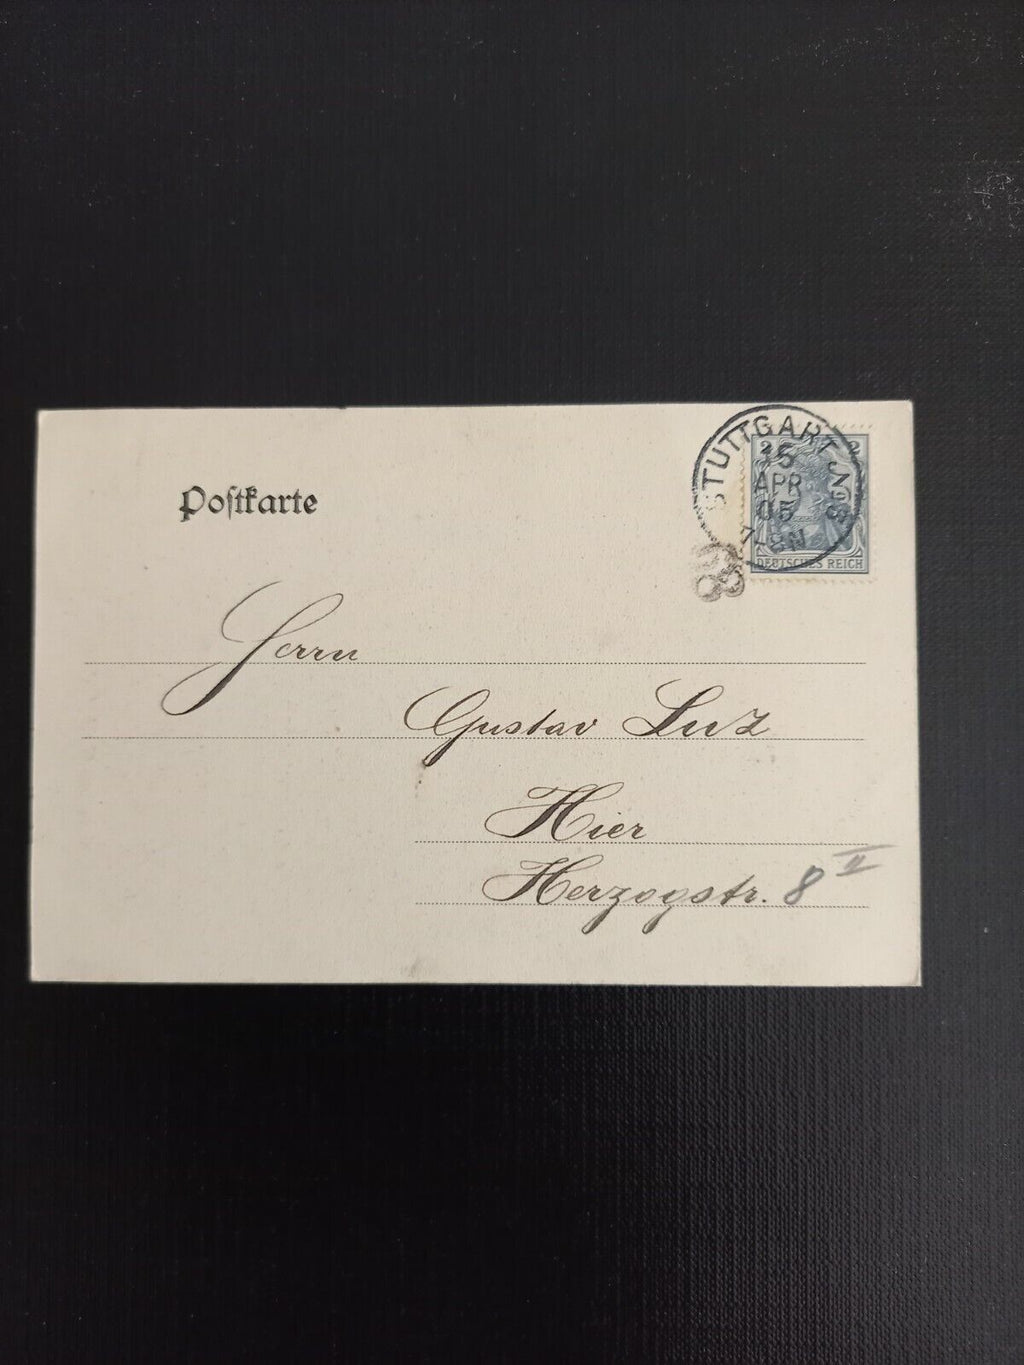 Poſtkarte
STUTTGART No 8
15
APR
05
7-8N
2 2
DEUTSCHES REICH
Herrn
Gustav Luz
Hier
Herzogstr. 8 II